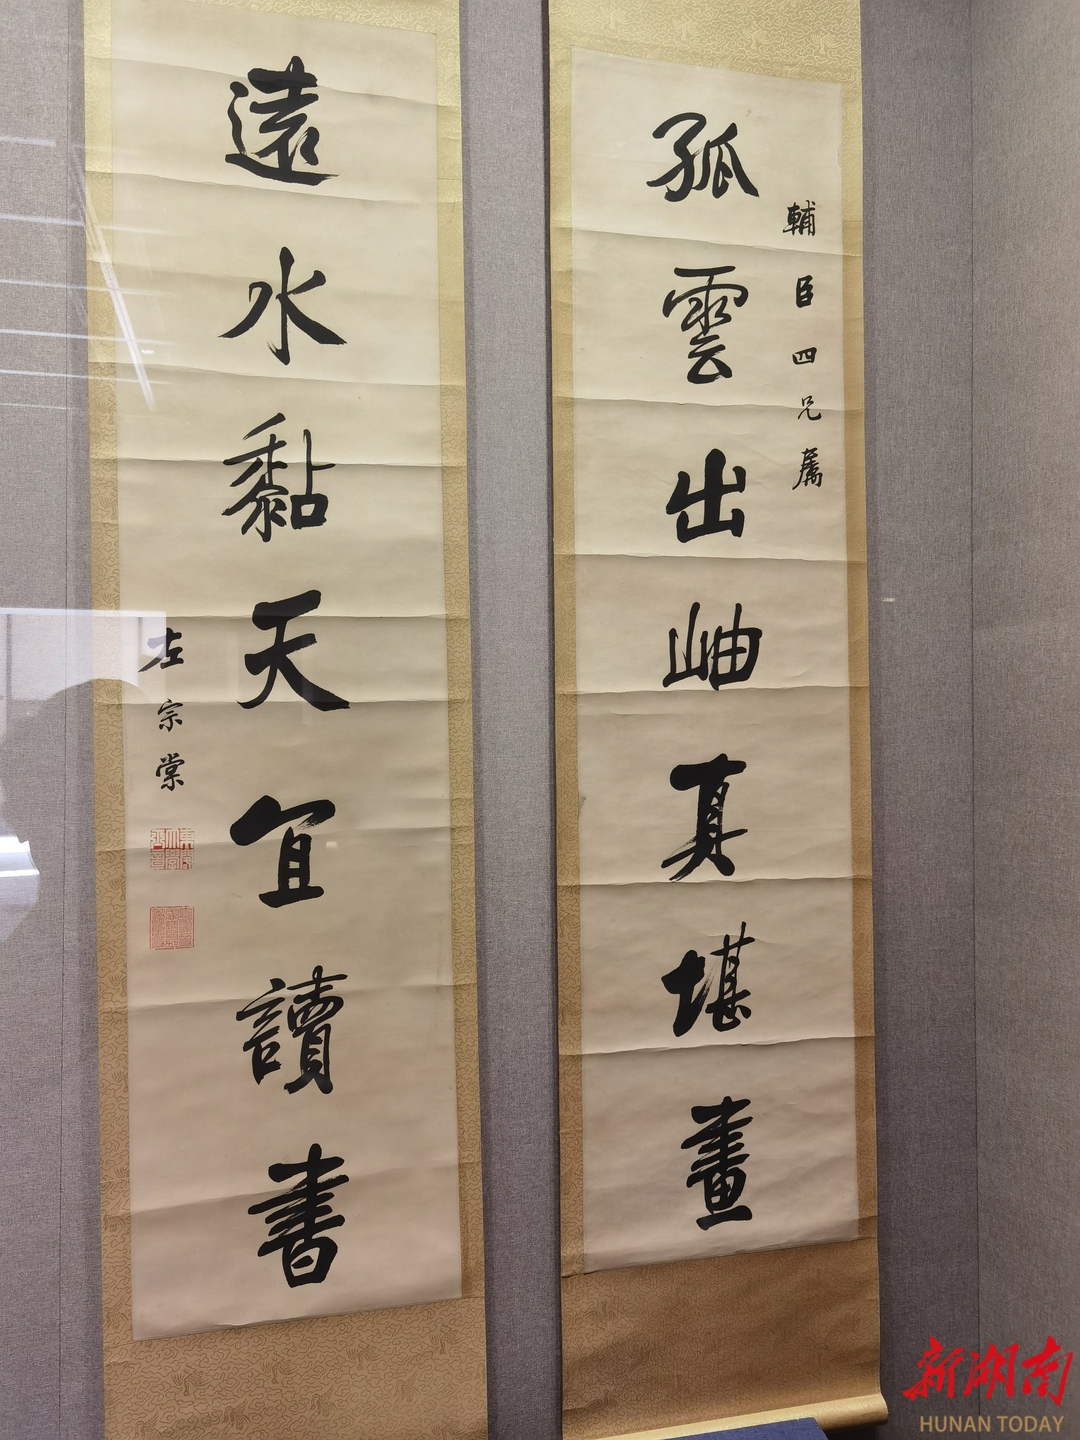 輔臣四兄属
孤雲出岫真堪畫
遠水黏天宜讀書
左宗棠
新湖南
HUNAN TODAY